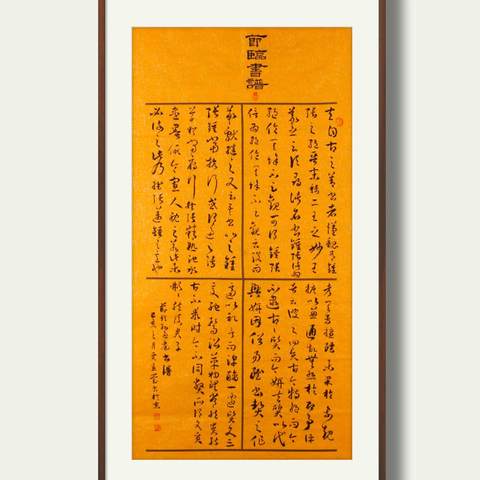 節臨書譜
夫自古之善書者漢魏有鍾
張之絕晉末稱二王之妙王
羲之云頃尋諸名書鍾張信為
絕倫其餘不足觀可謂鍾張
信為絕倫其餘不足觀云沒而
羲獻繼之又云吾書比之鍾
張鍾當抗行或謂過之張
草猶當雁行然張精熟池水
盡墨假令寡人耽之若此未
必謝之此乃推張邁鍾之意也
考其專擅雖未果於前規
摭以兼通故無慚於即事評
者云彼之四賢古今特絕而今
不逮古古質而今妍夫質以代
興妍因俗易雖書契之作
適以記言而淳醨一遷質文三
變馳騖沿革物理常然貴能
古不乖時今不同弊所謂文質
彬彬然後君子
節臨孫過庭書譜